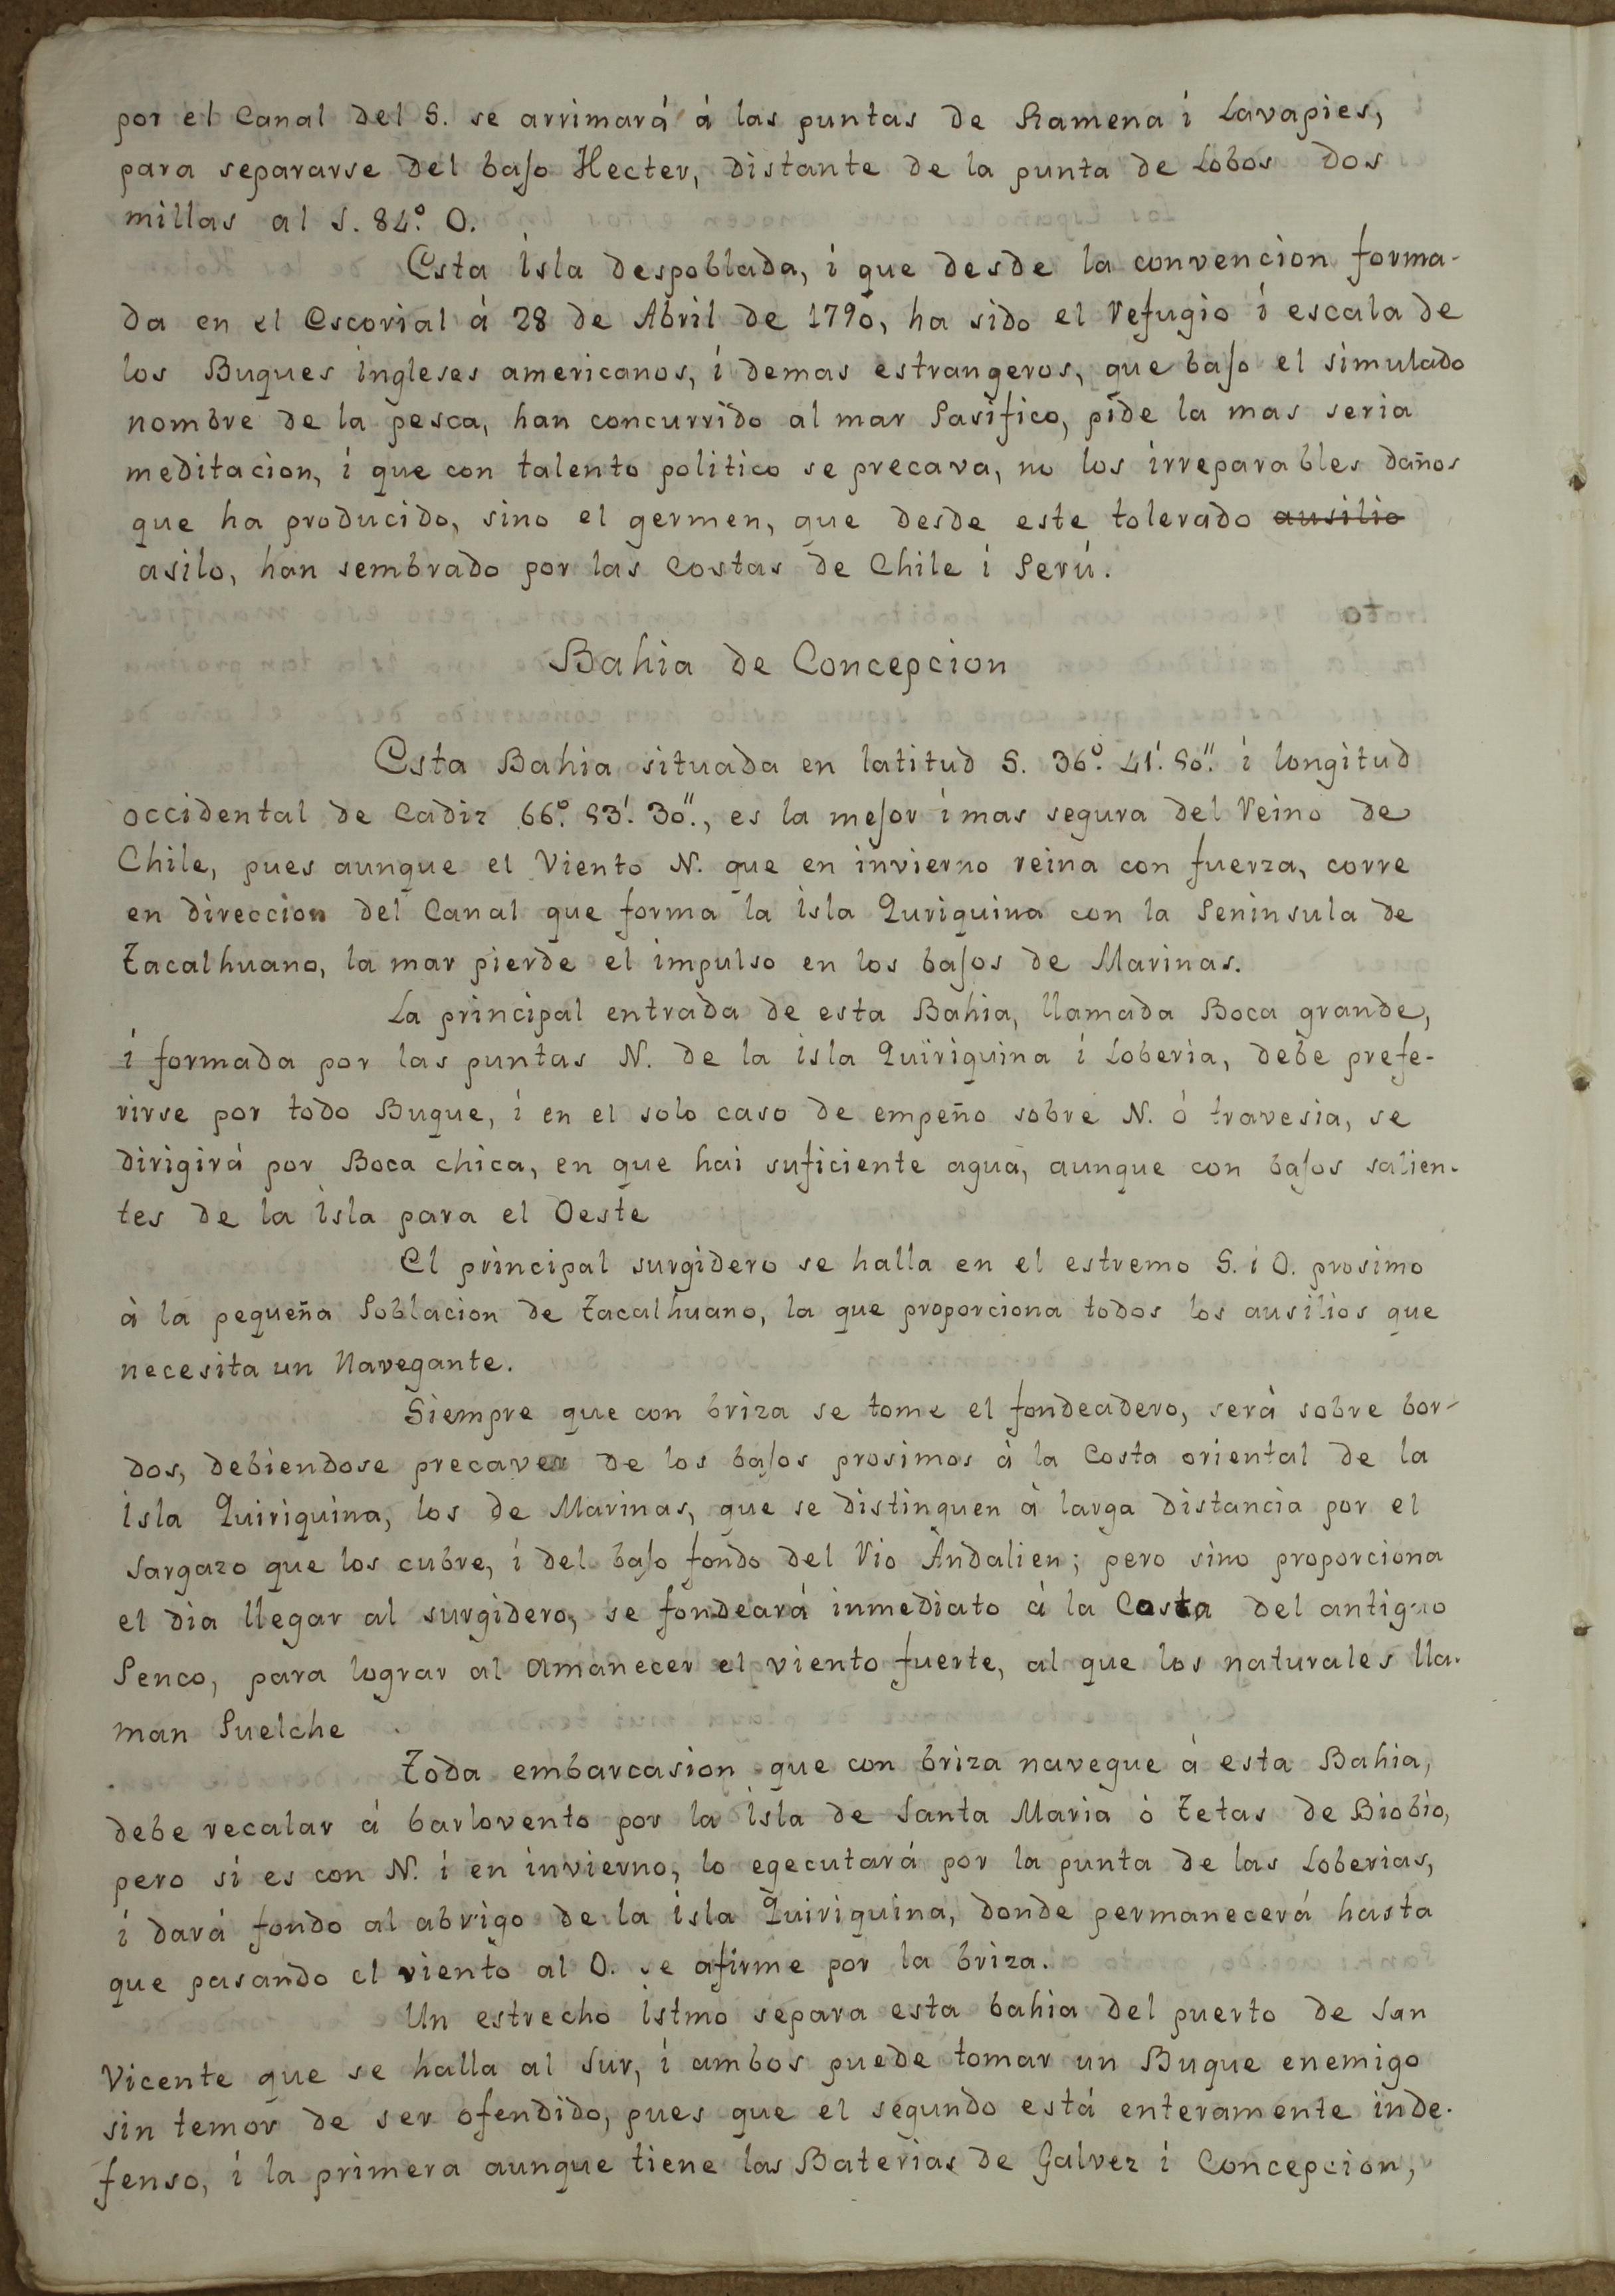 por el Canal del S. se arrimará á las puntas de Ramena i Lavapies,
para separarse del bajo Hecter, distante de la punta de Lobos dos
millas al S. 84.° O.
Esta Isla despoblada, i que desde la convencion forma-
da en el Escorial á 28 de Abril de 1790, ha sido el refugio i escala de
los Buques ingleses americanos, i demas estrangeros, que bajo el simulado
nombre de la pesca, han concurrido al mar Pasifico, pide la mas seria
meditacion, i que con talento politico se precava, no los irreparables daños
que ha producido, sino el germen, que desde este tolerado ausilio
asilo, han sembrado por las Costas de Chile i Perú.
Bahia de Concepcion
Esta Bahia situada en latitud S. 36.° 41.' 50." i longitud
occidental de Cadiz 66.° 53.' 30.", es la mejor i mas segura del Reino de
Chile, pues aunque el Viento N. que en invierno reina con fuerza, corre
en direccion del Canal que forma la Isla Quriquina con la Peninsula de
Tacalhuano, la mar pierde el impulso en los bajos de Marinas.
La principal entrada de esta Bahia, llamada Boca grande,
i formada por las puntas N. de la isla Quiriquina i Loberia, debe prefe-
rirse por todo Buque, i en el solo caso de empeño sobre N. ó travesia, se
dirigirá por Boca chica, en que hai suficiente agua, aunque con bajos salien-
tes de la Isla para el Oeste
El principal surgidero se halla en el estremo S. i O. prosimo
á la pequeña Poblacion de Tacalhuano, la que proporciona todos los ausilios que
necesita un Navegante.
Siempre que con briza se tome el fondeadero, será sobre bor-
dos, debiendose precaver de los bajos prosimos á la Costa oriental de la
Isla Quiriquina, los de Marinas, que se distinguen á larga distancia por el
Sargazo que los cubre, i del bajo fondo del Rio Andalien; pero sino proporciona
el dia llegar al surgidero, se fondeará inmediato á la Costa del antiguo
Penco, para lograr al amanecer el viento fuerte, al que los naturales lla-
man Puelche
Toda embarcasion que con briza navegue á esta Bahia,
debe recalar á barlovento por la Isla de Santa Maria ó Tetas de Biobio,
pero si es con N. i en invierno, lo egecutará por la punta de las Loberias,
i dará fondo al abrigo de la isla Quiriquina, donde permanecerá hasta
que pasando el viento al O. se afirme por la briza.
Un estrecho Istmo separa esta bahia del puerto de San
Vicente que se halla al Sur, i ambos puede tomar un Buque enemigo
sin temor de ser ofendido, pues que el segundo está enteramente inde-
fenso, i la primera aunque tiene las Baterias de Galvez i Concepcion,